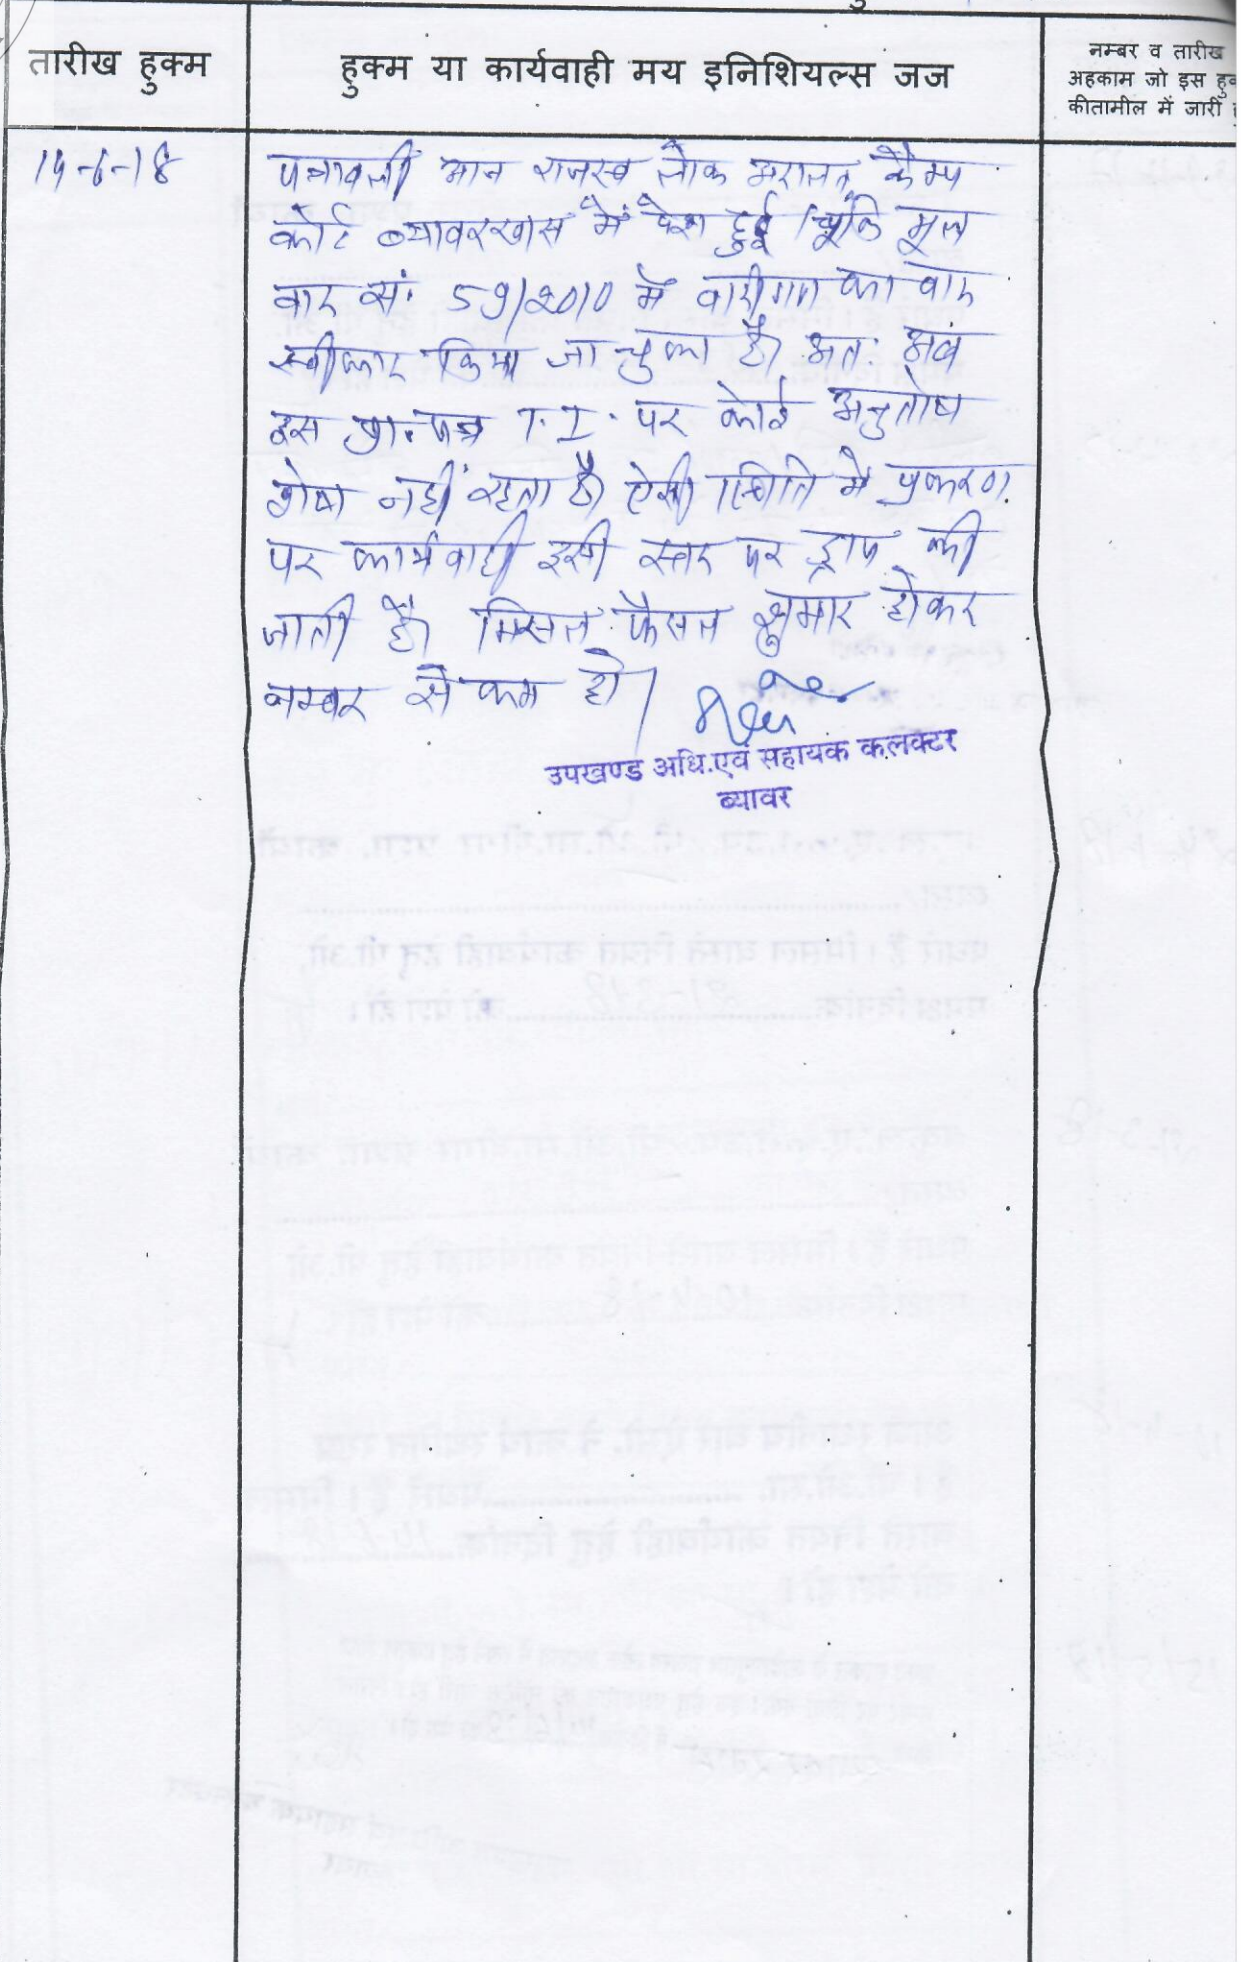 तारीख हुक्म
हुक्म या कार्यवाही मय इनिशियल्स जज
नम्बर व तारीख
अहकाम जो इस हुक
कीतामील में जारी
14-6-18
पत्रावली आज राजस्व लोक अदालत कैम्प
कोर्ट ब्यावरखास में पेश हुई। चूंकि मूल
वाद सं. 59/2010 में वादीगण का वाद
स्वीकार किया जा चुका है। अतः अब
इस प्रा.पत्र T.I. पर कोई अनुतोष
शेष नहीं रहता है। ऐसी स्थिति में प्रकरण
पर कार्यवाही इसी स्तर पर ड्राप की
जाती है। मिसल फैसल शुमार होकर
नम्बर से कम हो।
उपखण्ड अधि.एवं सहायक कलक्टर
ब्यावर